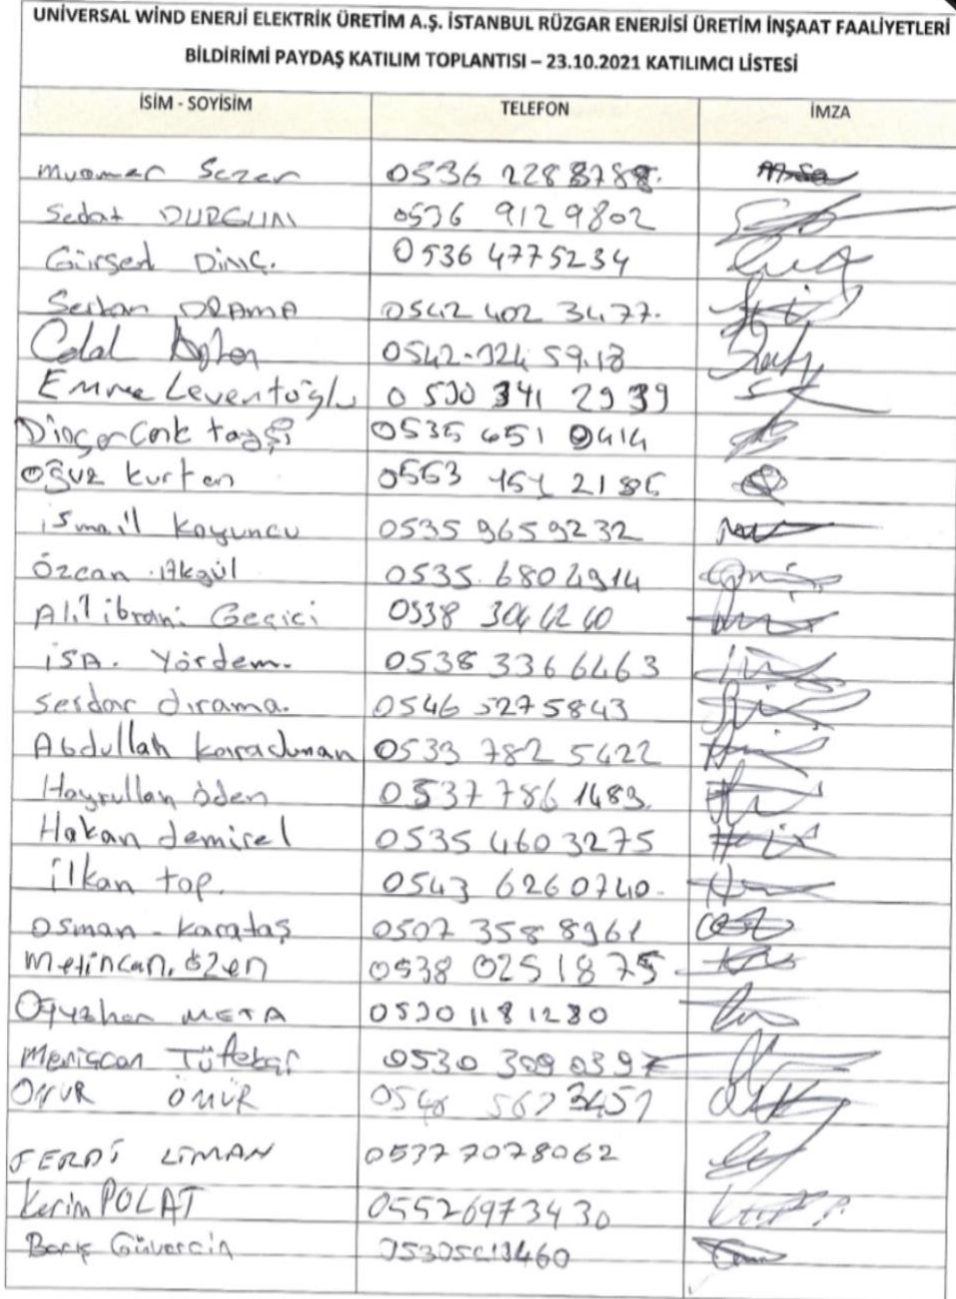 UNİVERSAL WİND ENERJİ ELEKTRİK ÜRETİM A.Ş. İSTANBUL RÜZGAR ENERJİSİ ÜRETİM İNŞAAT FAALİYETLERİ
BİLDİRİMİ PAYDAŞ KATILIM TOPLANTISI – 23.10.2021 KATILIMCI LİSTESİ
İSİM - SOYİSİM TELEFON İMZA
Muamer Sezer 0536 2288788.
Sedat DURGUN 0536 9129802
Gürsed DİNÇ. 0536 4775234
Serkan DRAMA 0542 402 3477.
Celal 0542-324 59.18
Emre Leventoğlu 0530 341 2939
0535 651 0414
Oğuz kurtan 0553 151 2186
ismail koyuncu 0535 9659232
Özcan Akgül 0535 6804914
Geçici 0538 304 42 40
iSA. Yördem. 0538 336 6463
serdar dırama. 0546 5275843
Abdullah karaduman 0533 782 5422
Hayrullah öden 0537 786 1489.
Hakan demirel 0535 460 3275
ilkan top. 0543 626 0740.
Osman - karataş 0507 358 8961
Metincan. özen 0538 025 1875
Oğuzhan META 0530 118 1280
0530 309 0397
ONUR ÖMÜR 0546 567 3457
FERDİ LİMAN 0537 7078062
Kerim POLAT 05526973430
Barış Güvercin